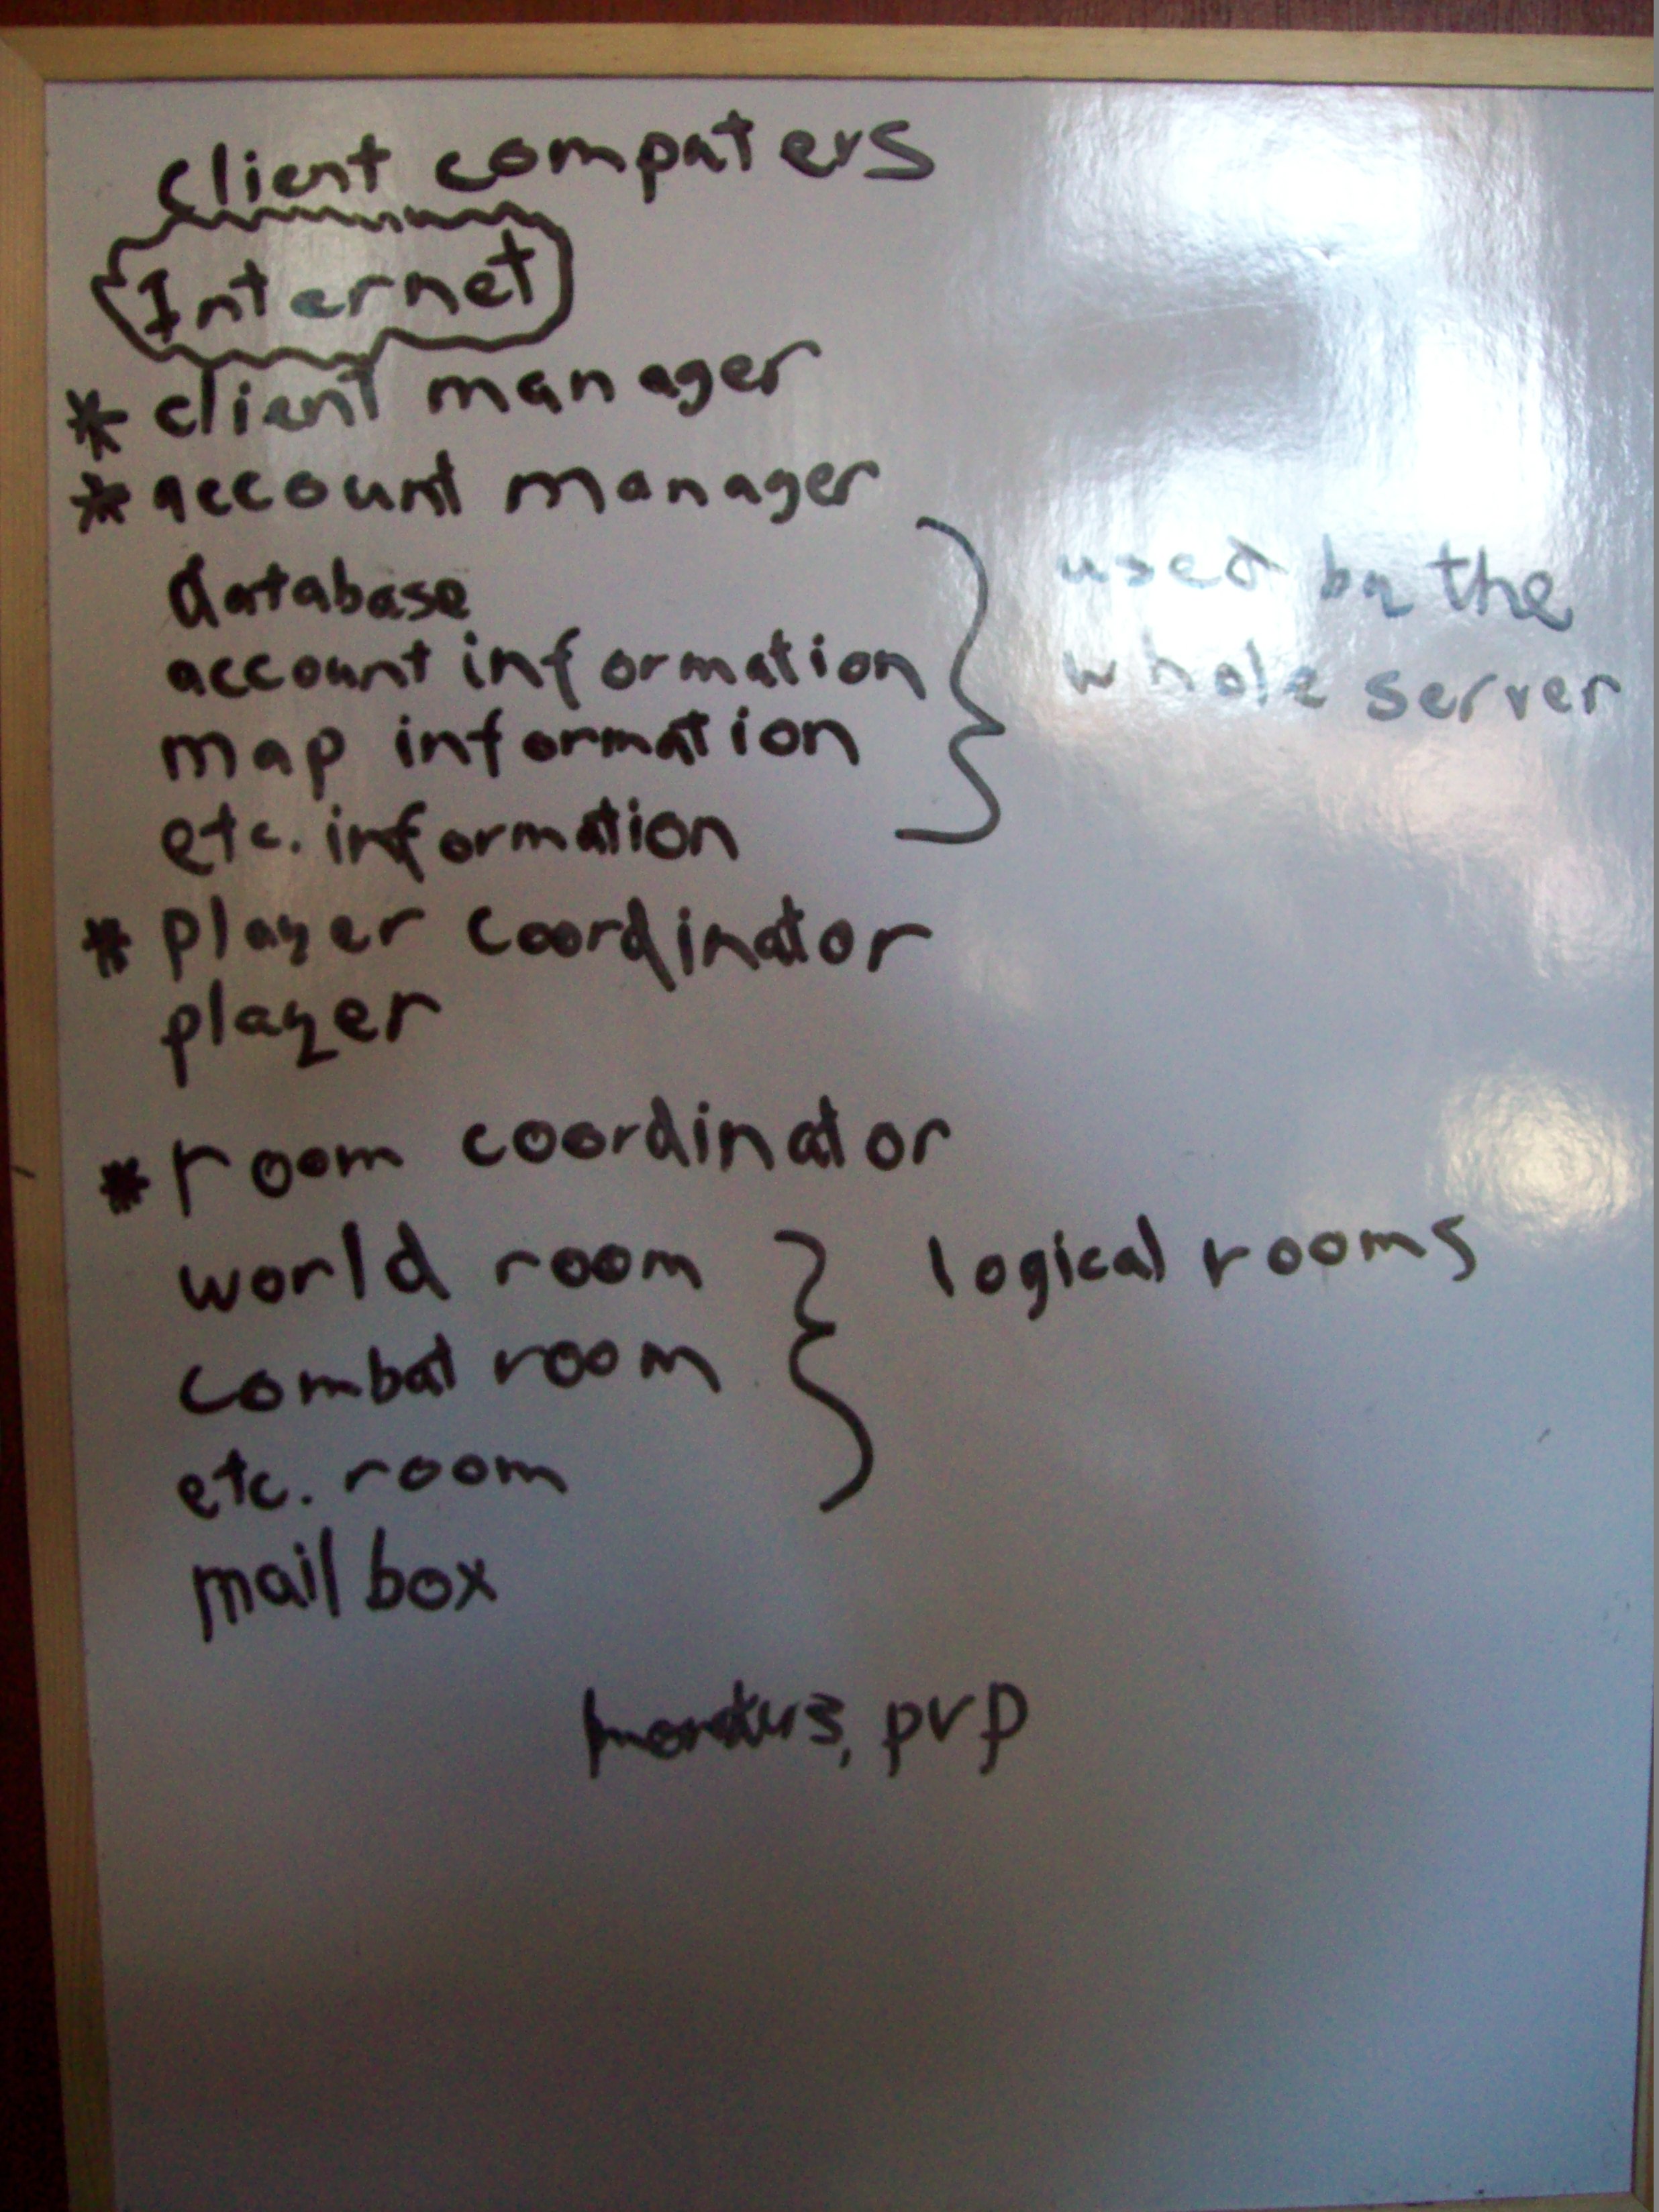 client computers
Internet
* client manager
* account manager
database
account information
map information
etc. information
used by the
whole server
* player coordinator
player
* room coordinator
world room
combat room
etc. room
logical rooms
mail box
monsters, pvp